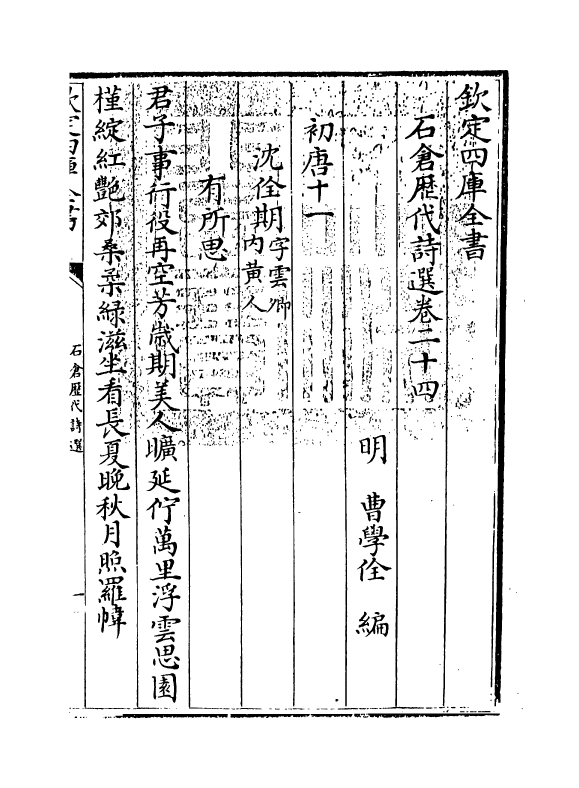 欽定四庫全書
石倉歴代詩選卷二十四
明 曹學佺 編
初唐十一
沈佺期字雲卿
内黄人
有所思
君子事行役再空芳歳期美人曠延佇萬里浮雲思園
槿綻紅艶郊桑柔緑滋坐看長夏晚秋月照羅幃
石倉歴代詩選
一